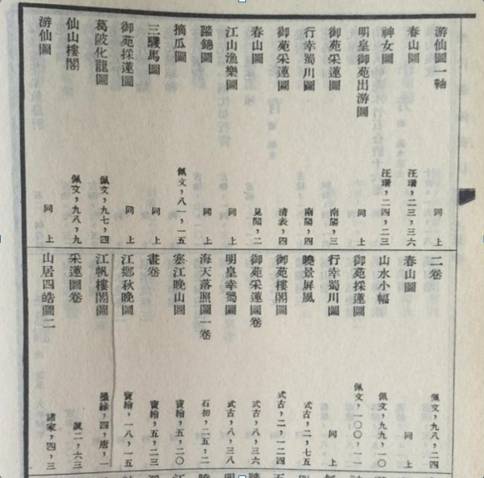 游仙圖一軸 同上
春山圖 汪珊,二三,三六
神女圖 汪珊,二四,二三
明皇御苑出游圖 同上
御苑采蓮圖 南陽,三
行幸蜀川圖 南陽,四
御苑采蓮圖 清表,四
春山圖 見聞,二
江山漁樂圖 同上
踏錦圖 同上
摘瓜圖 佩文,八一,一五
三驄馬圖 同上
御苑採蓮圖 同上
葛陂化龍圖 佩文,九七,四
仙山樓閣 佩文,九八,九
游仙圖 同上
二卷 佩文,九八,二四
春山圖 同上
山水小幅 佩文,九九,一〇
御苑採蓮圖 佩文,一〇〇,一一
行幸蜀川圖 同上
曉景屏風 式古,二,七五
御苑樓閣圖 式古,二,一二四
御苑采蓮圖卷 式古,八,三六
明皇幸蜀圖 式古,八,三八
海天落照圖一卷 石初,二五,二
寒江晚山圖 寶繪,五,二〇
畫卷 寶繪,五,二三
江鄉秋晚圖 寶繪,一八,一五
江帆樓閣圖 墨緣,四,唐,一
采蓮圖卷 二,六三
山居四皓圖二 諸家,四,三